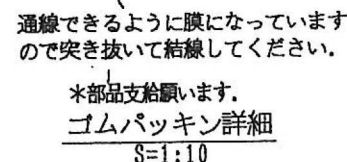 通線できるように膜になっています
ので突き抜いて結線してください.
*部品支給願います.
ゴムパッキン詳細
S=1:10